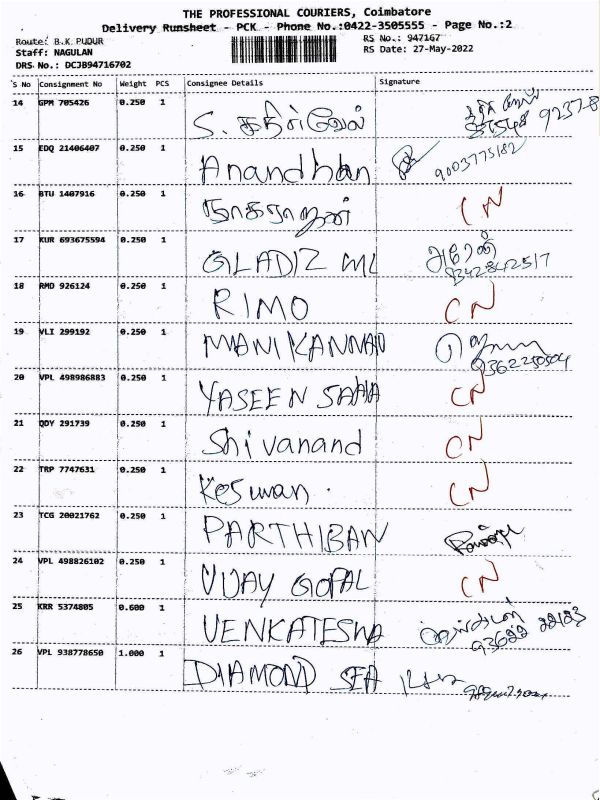 THE PROFESSIONAL COURIERS, Coimbatore
Delivery Runsheet - PCK - Phone No.:0422-3505555 - Page No.:2
Route: B.K.PUDUR RS No.: 947167
Staff: NAGULAN RS Date: 27-May-2022
DRS No.: DCJB94716702
S No Consignment No Weight PCS Consignee Details Signature
14 GPM 705426 0.250 1 S. கதிர்வேல்
15 EDQ 21406407 0.250 1 Anandhan 9003775182
16 BTU 1407916 0.250 1 நாகராஜன் CN
17 KUR 693675594 0.250 1 GLADIZ
18 RMD 926124 0.250 1 RIMO CN
19 VLI 299192 0.250 1 MANIKANNAN 9362250504
20 VPL 498986883 0.250 1 YASEEN SAHA CN
21 QDY 291739 0.250 1 Shivanand CN
22 TRP 7747631 0.250 1 Keswan. CN
23 TCG 20021762 0.250 1 PARTHIBAN
24 VPL 498826102 0.250 1 VIJAY GOPAL CN
25 KRR 5374805 0.600 1 VENKATESHA
26 VPL 938778650 1.000 1 DIAMOND SEA